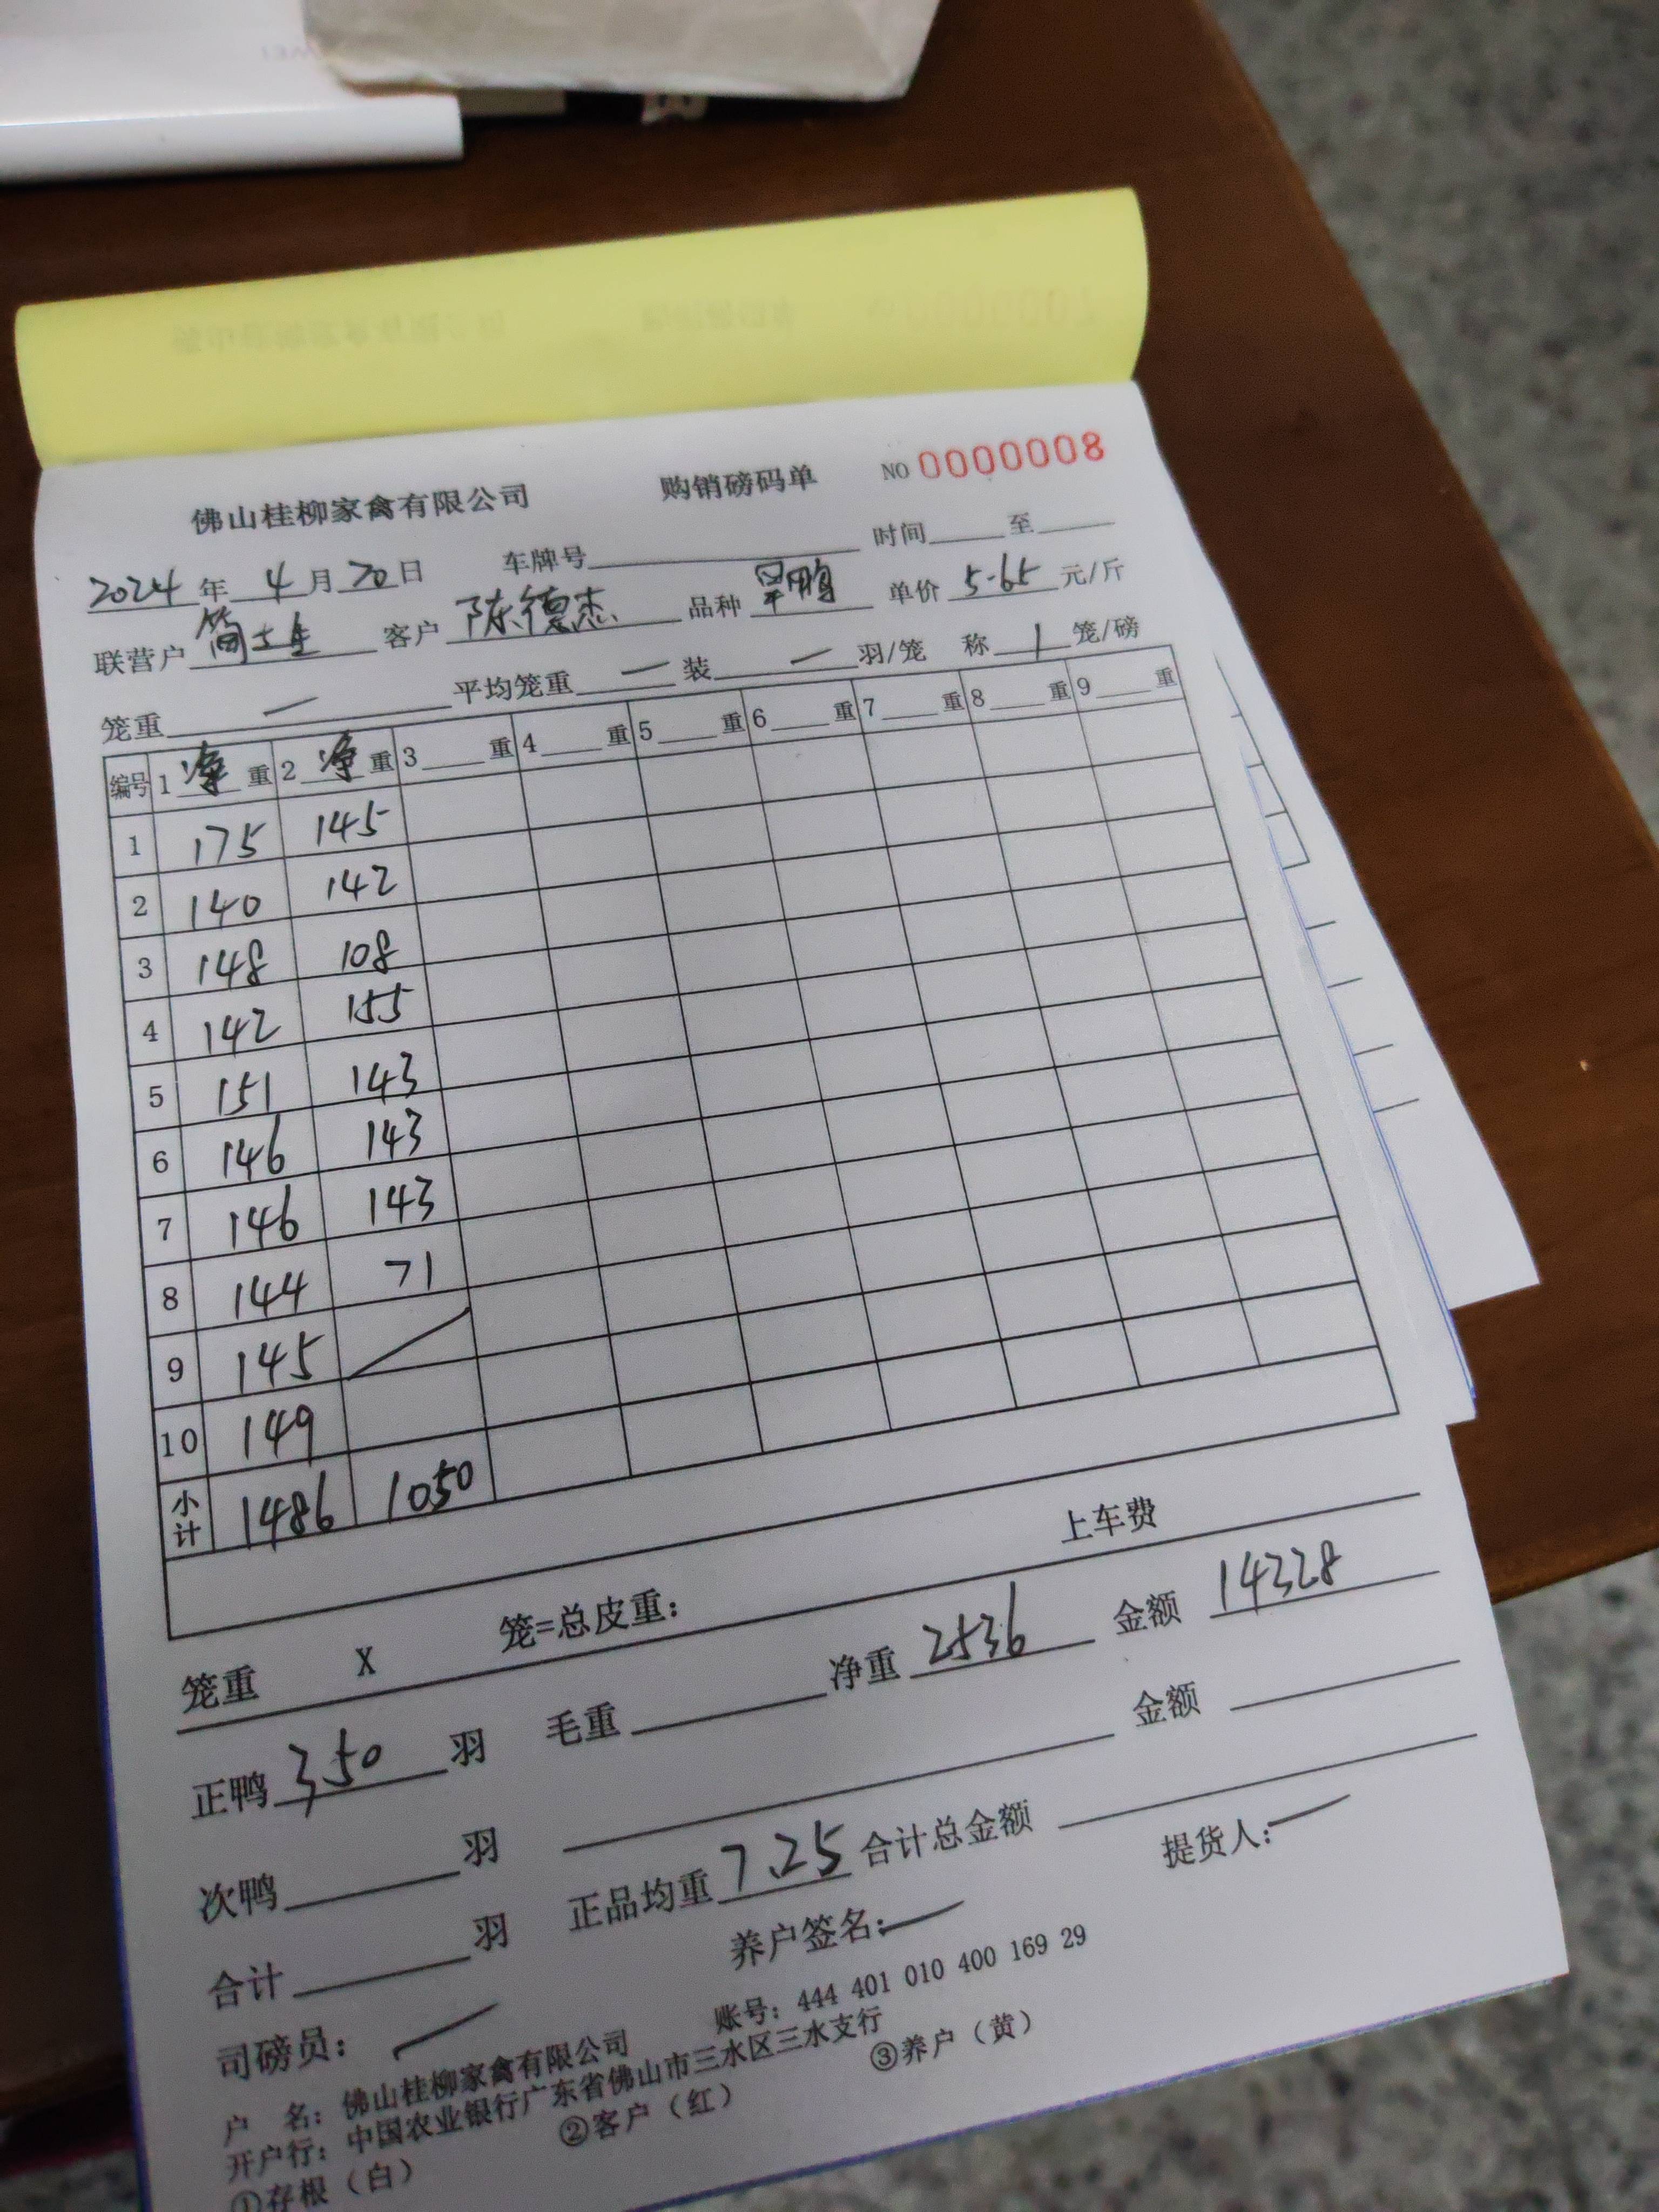 佛山桂柳家禽有限公司 购销磅码单 NO 0000008
2024 年 4 月 20 日 车牌号 时间 至
联营户 简士生 客户 陈德杰 品种 单价 5.65 元/斤
笼重 — 平均笼重 — 装 — 羽/笼 称 1 笼/磅
编号 1 净 重 2 净 重 3 重 4 重 5 重 6 重 7 重 8 重 9 重
1 175 145
2 140 142
3 148 108
4 142 155
5 151 143
6 146 143
7 146 143
8 144 71
9 145
10 149
小计 1486 1050
笼重 X 笼=总皮重: 上车费
正鸭 350 羽 毛重 净重 2536 金额 14328
次鸭 羽 金额
合计 羽 正品均重 7.25 合计总金额
司磅员: 养户签名: 提货人:
户 名: 佛山桂柳家禽有限公司 账号: 444 401 010 400 169 29
开户行: 中国农业银行广东省佛山市三水区三水支行
①存根（白） ②客户（红） ③养户（黄）